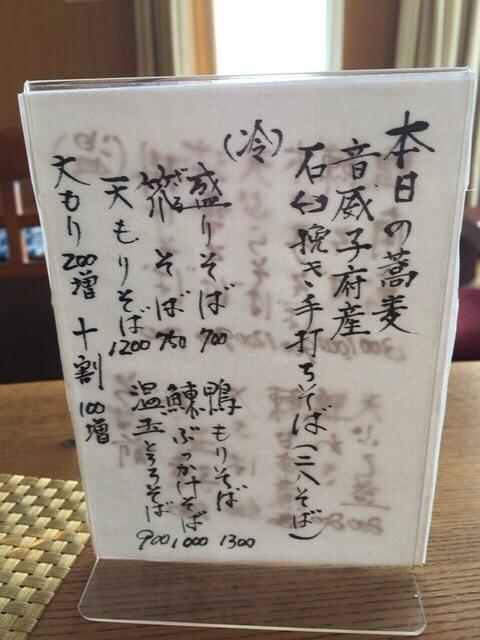 本日の蕎麦
音威子府産
石臼挽き手打ちそば(二八そば)
(冷)
盛りそば 700
ざる
笊そば 750
天もりそば 1200
鴨もりそば 1300
鰊ぶっかけそば 1000
温玉とろろそば 900
大もり 200増 十割 100増